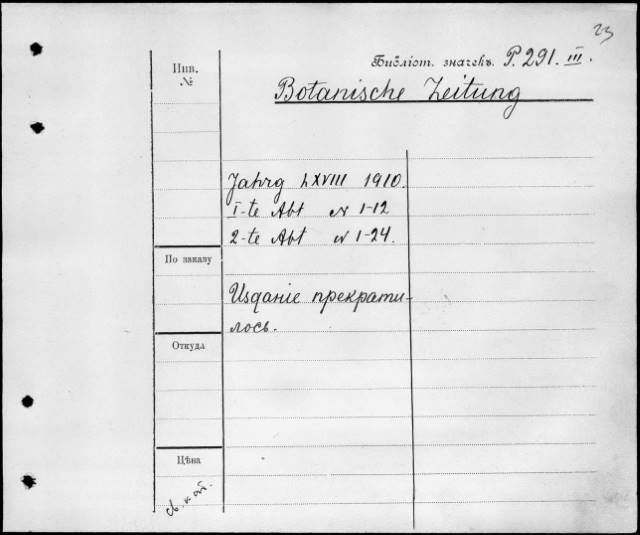 23
Библіот. значекъ. P. 291. III.
Инв.
№
Botanische Zeitung
Jahrg LXVIII 1910.
I-te Abt N 1-12
2-te Abt N 1-24.
По заказу
Изданіе прекрати-
лось.
Откуда
Цѣна